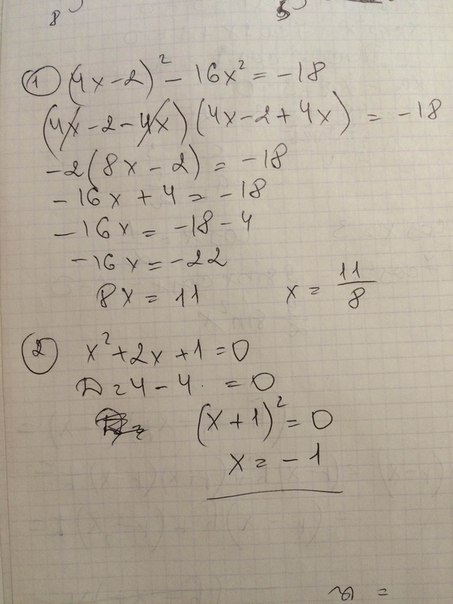 8
① (4x-2)² - 16x² = -18
(4x-2-4x)(4x-2+4x) = -18
-2(8x-2) = -18
-16x + 4 = -18
-16x = -18-4
-16x = -22
8x = 11 x = 11/8
② x² + 2x + 1 = 0
D = 4-4 = 0
(x+1)² = 0
x = -1